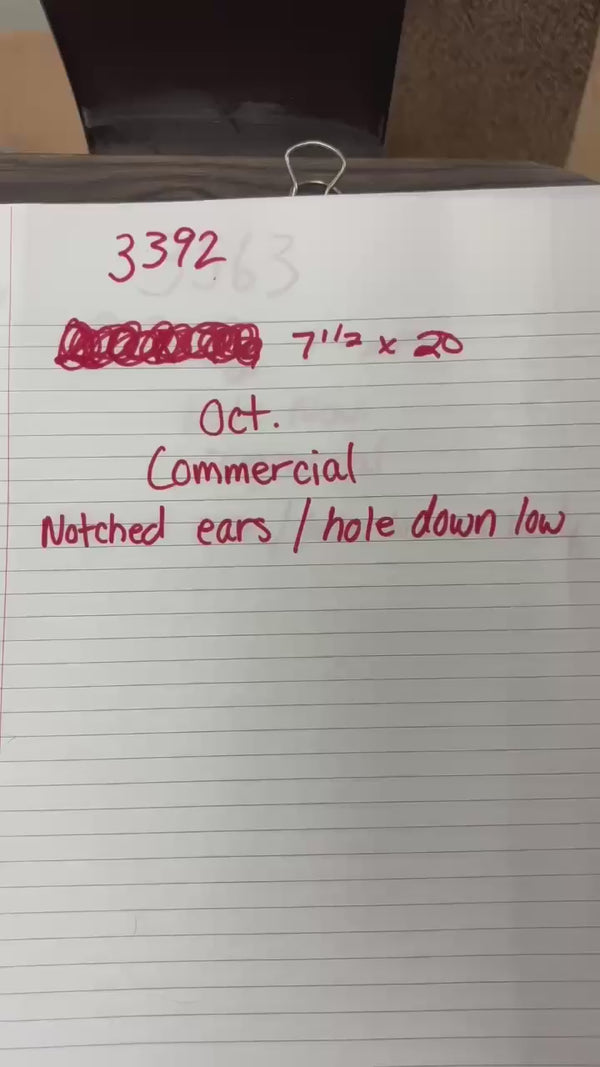 3392
7 1/2 x 20
Oct.
Commercial
Notched ears / hole down low